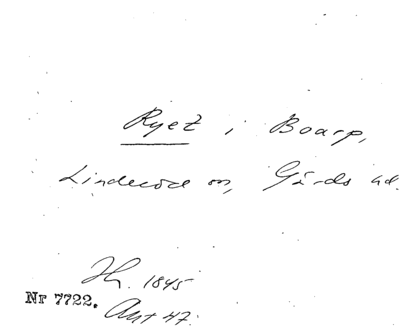 Ryet i Boarp,
Linderöd sn, Gärds hd.
Hy. 1845
Nr 7722. Ant 47.